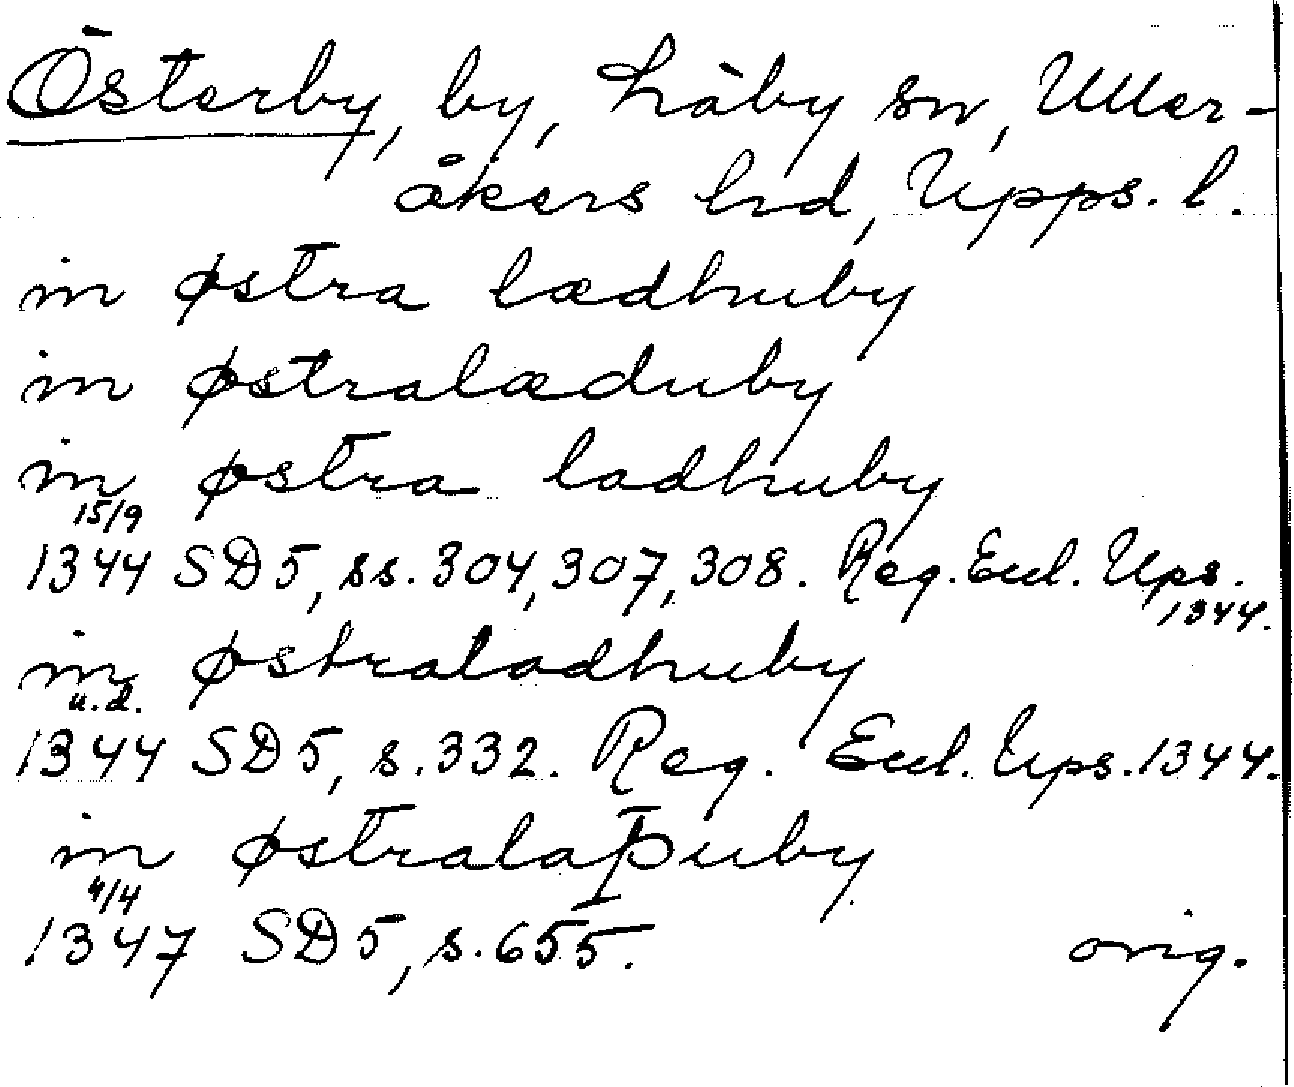 Österby, by, Låby sn, Uller-
åkers hd, Upps. l.
in østra lædhuby
in østralæduby
in østra ladhuby
15/9
1344 SD5, ss. 304, 307, 308. Reg. Eccl. Ups.
1344.
in østraladhuby
u.d.
1344 SD5, s. 332. Reg. Eccl. Ups. 1344.
in østralaþuby
4/4
1347 SD5, s. 655. orig.